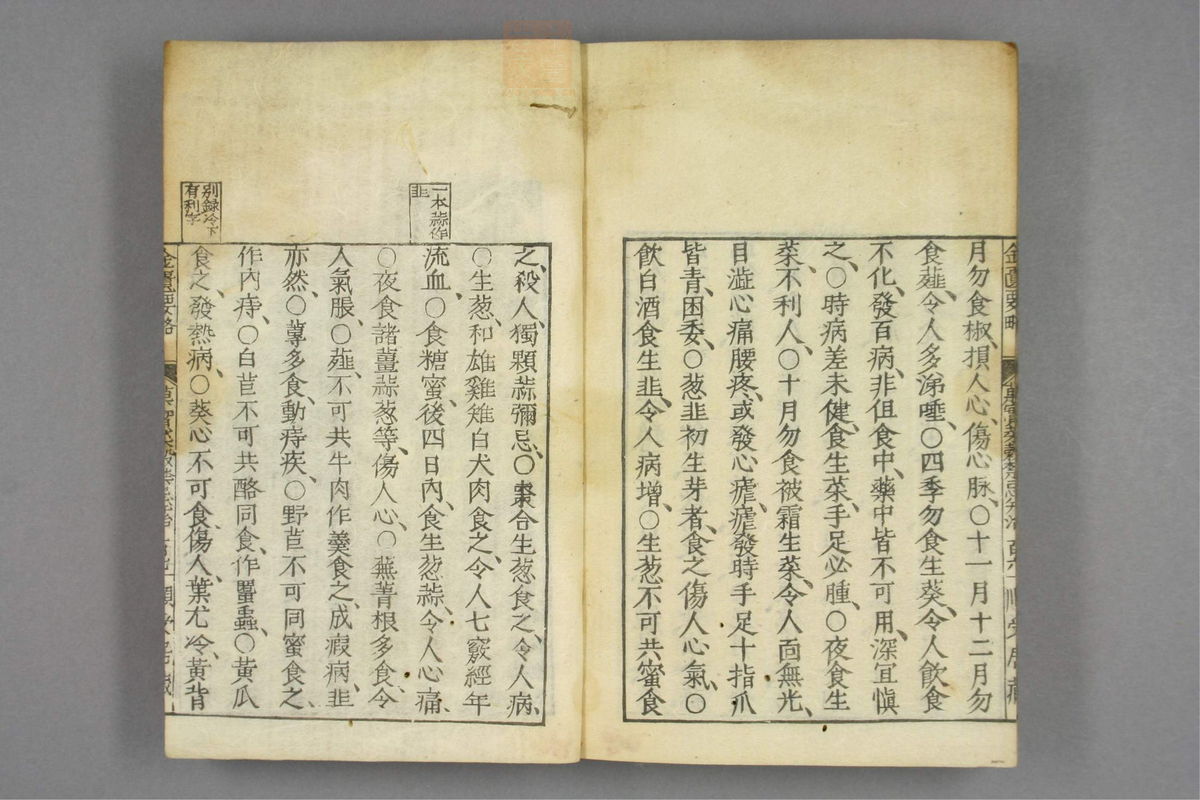 月勿食椒、損人心、傷心脉、○十一月十二月勿
食薤、令人多涕唾、○四季勿食生葵、令人飲食
不化、發百病、非但食中、藥中皆不可用、深宜愼
之、○時病差未健、食生菜、手足必腫、○夜食生
菜、不利人、○十月勿食被霜生菜、令人面無光、
目澁心痛腰疼、或發心瘧、瘧發時手足十指爪
皆青、困委、○葱韭初生芽者、食之傷人心氣、○
飲白酒食生韭、令人病增、○生葱不可共蜜食
之、殺人、獨顆蒜彌忌、○棗合生葱食之、令人病、
○生葱、和雄雞雉白犬肉食之、令人七竅經年
流血、○食糖蜜、後四日內、食生葱蒜、令人心痛、
○夜食諸薑蒜葱等、傷人心、○蕪菁根多食、令
人氣脹、○薤、不可共牛肉作羹食之、成瘕病、韭
亦然、○蓴多食、動痔疾、○野苣不可同蜜食之、
作內痔、○白苣不可共酪同食、作䘌蟲、○黃瓜
食之、發熱病、○葵心不可食、傷人、葉尤冷、黃背
一本蒜作
韭
別錄冷下
有利字
金匱要略
金匱要略